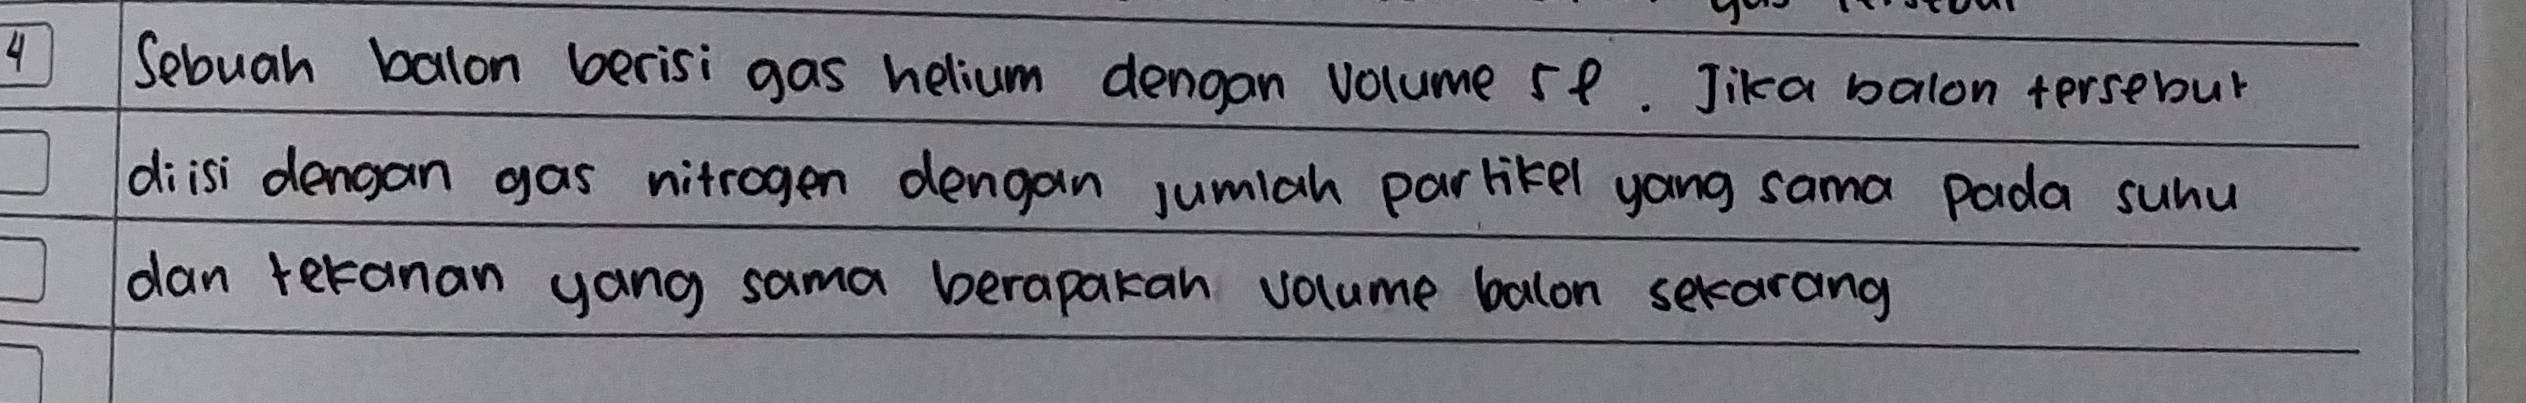 4 Sebuah balon berisi gas helium dengan volume 5 l. Jika balon tersebut
diisi dengan gas nitrogen dengan jumlah partikel yang sama pada suhu
dan tekanan yang sama berapakah volume balon sekarang